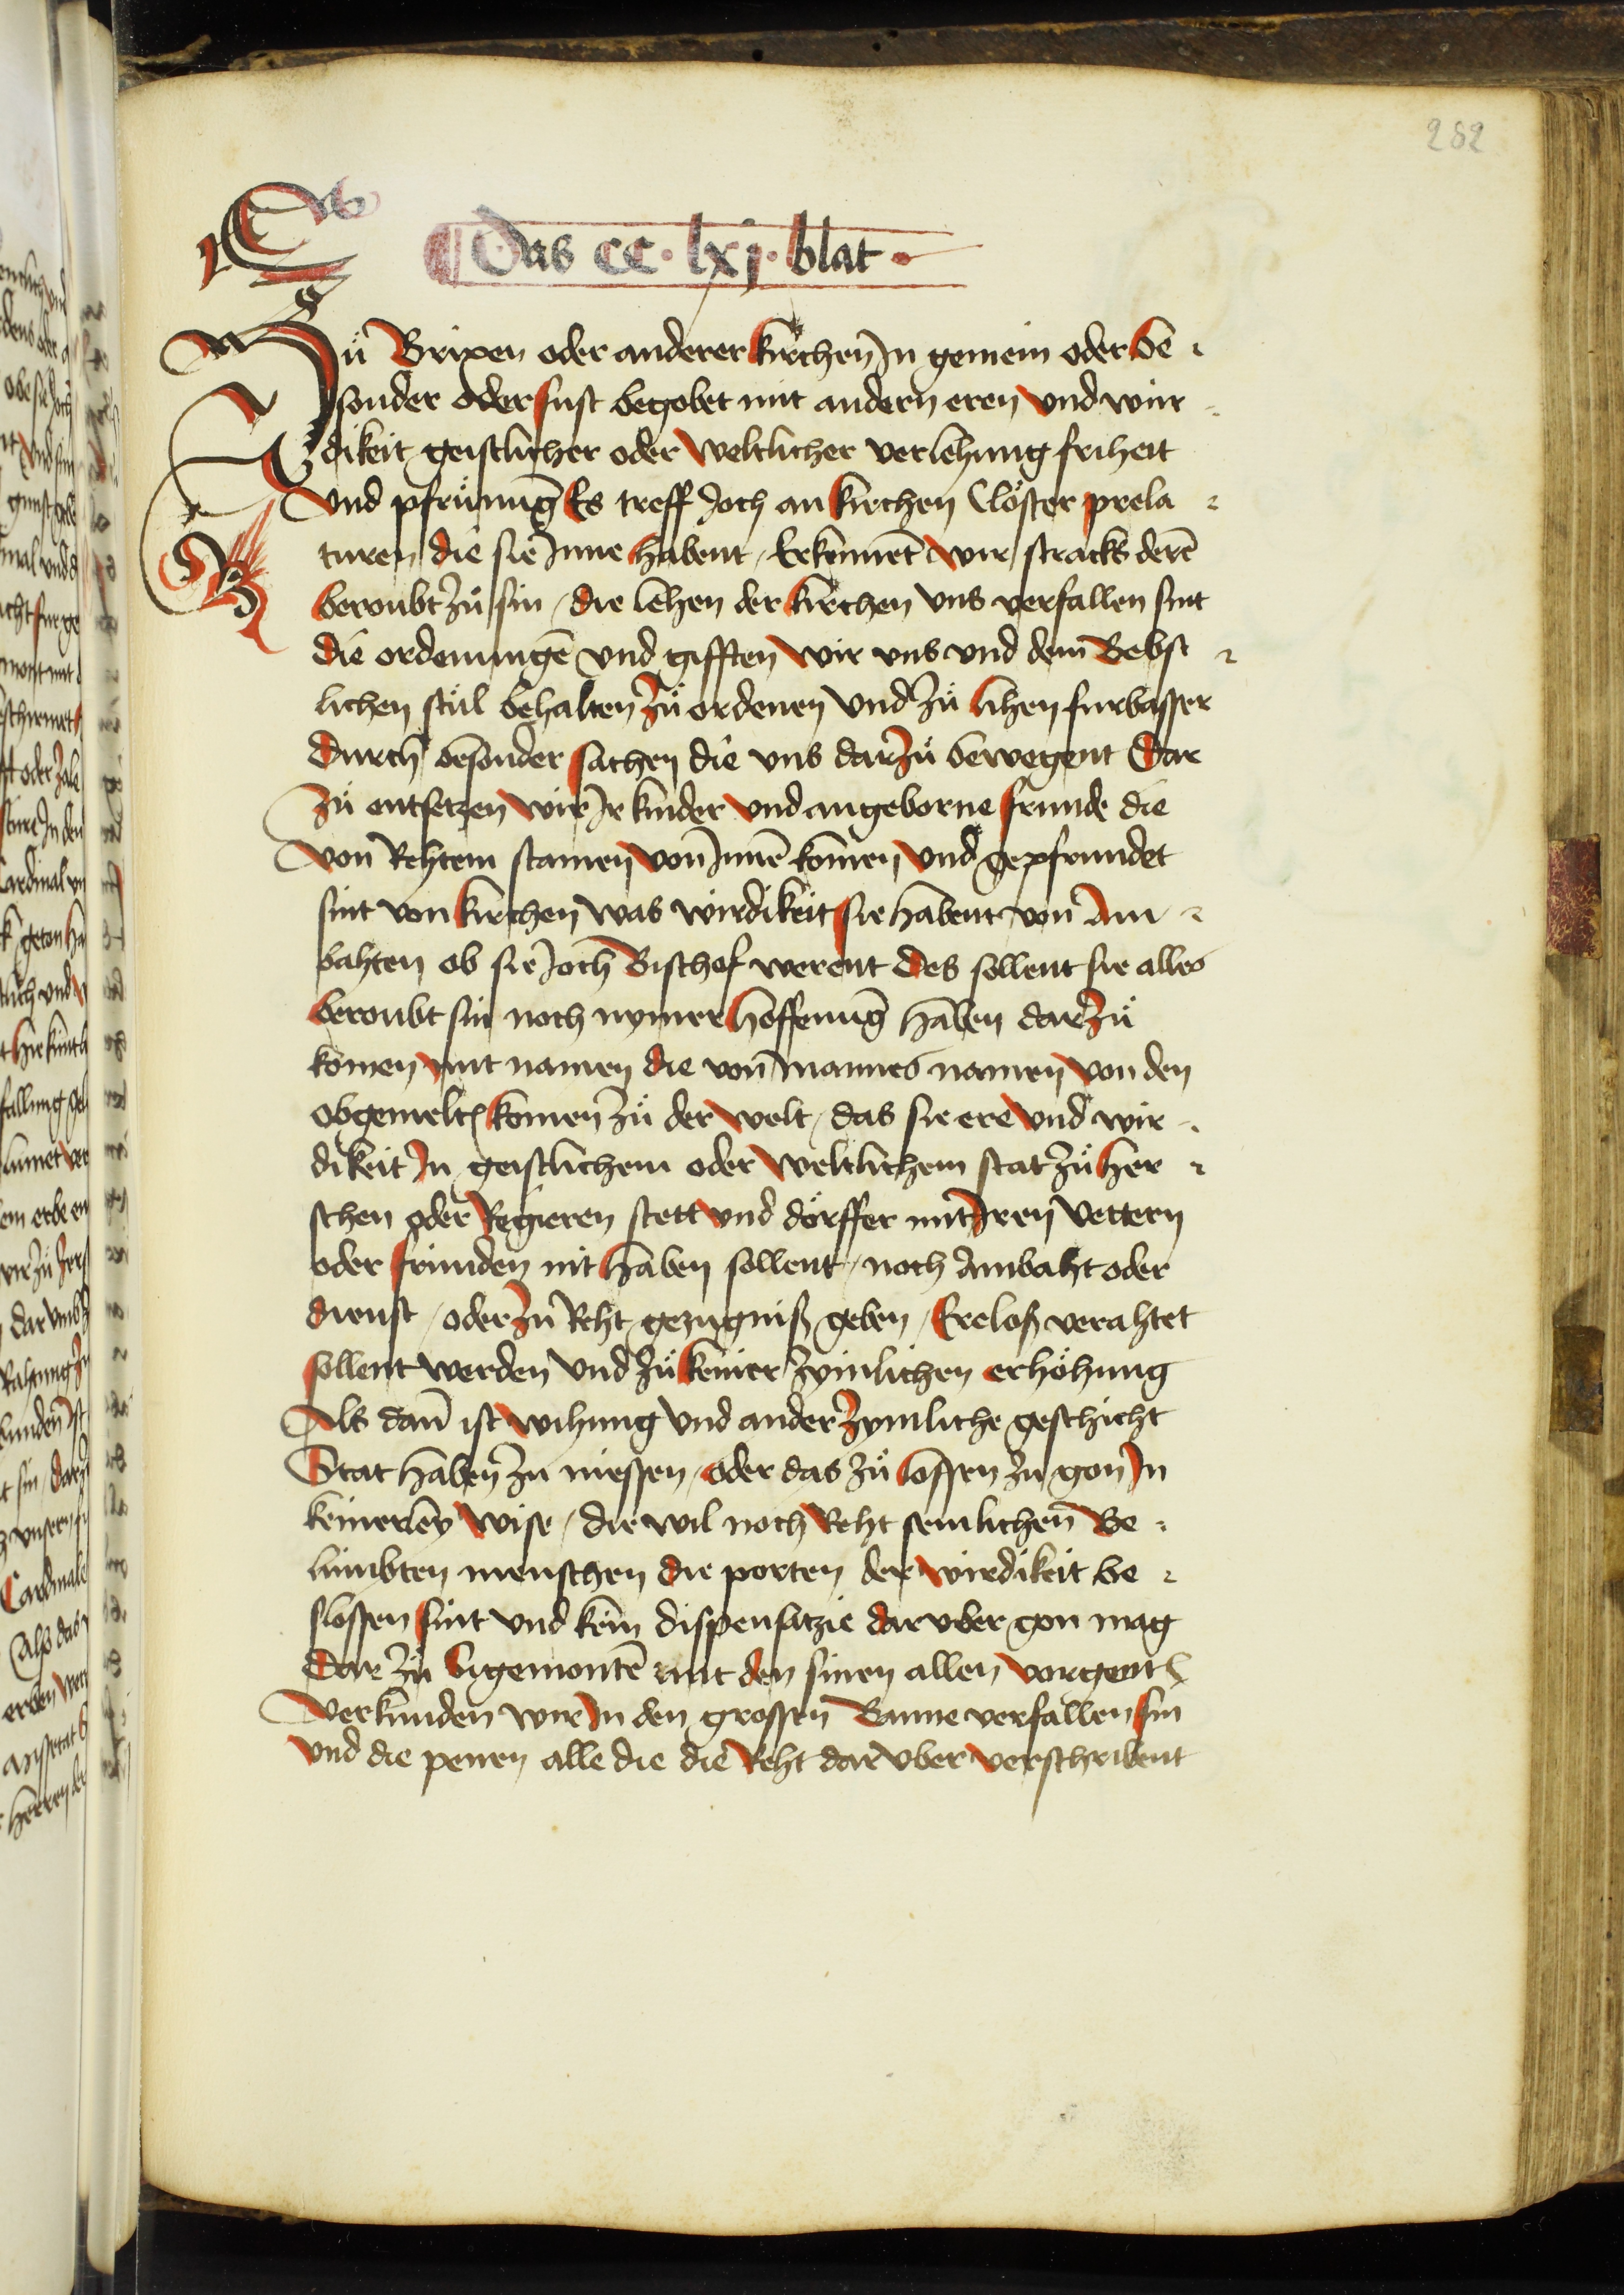 282
Das cc · lxj · blat ·
Zů Brixen oder anderer kirchen Jn gemein oder be
sonder oder sust begobet mit andern eren vnd wir
dikeit geistlicher oder weltlicher verlehung friheit
vnd pfrůnug̅ Es treff Joch an kirchen Clöster prela
turen die sie Jnne habent / Erkennet wir stracks dere̅
beroubt zů sin / die lehen der kirchen vns verfallen sint
die ordenunge̅ vnd gifften wir vns vnd dem Bebst
lichen stůl behalten zů ordenen vnd zů lihen furbasser
durch besonder sachen die vns dar zů bewegent Dar
zů entsetzen wir Jr kinder vnd angeborne frunde die
von Rehtem stamen von Jnne̅ komen vnd gepfrundet
sint von kirchen was wirdikeit sie habent von Am
bahten ob sie Joch Bischof werent des sollent sie alles
beroubt sin noch nymer hoffenug̅ haben dar zů
komen mit namen die von mannes namen von den
obgemelt͛ komen zů der welt / das sie ere vnd wir
dikeit Jn geistlichem oder weltlichem stat zů her
schen oder Regieren stett vnd dörffer mit Jren vettern
oder frunden nit haben sollent / noch Ambaht oder
dienst / oder zu Reht gezugniß geben / Ereloß verahtet
sollent werden vnd zů keiner zymlichen erhöhung
Als dan̅ ist wihung vnd ander zymliche geschicht
Stat haben zu niessen / oder das zů lossen zu gon Jn
keinerley wise / die wil noch Reht semlichen Be
lümbten menschen die porten der wirdikeit be
slossen sint vnd kein dispensatzie dar vber gon mag
Dar zů bigemonte̅ mit den sinen allen vorgent͛
verkunden wir Jn den grossen Banne verfallen sin
vnd die penen alle die die Reht dar vber verschribent